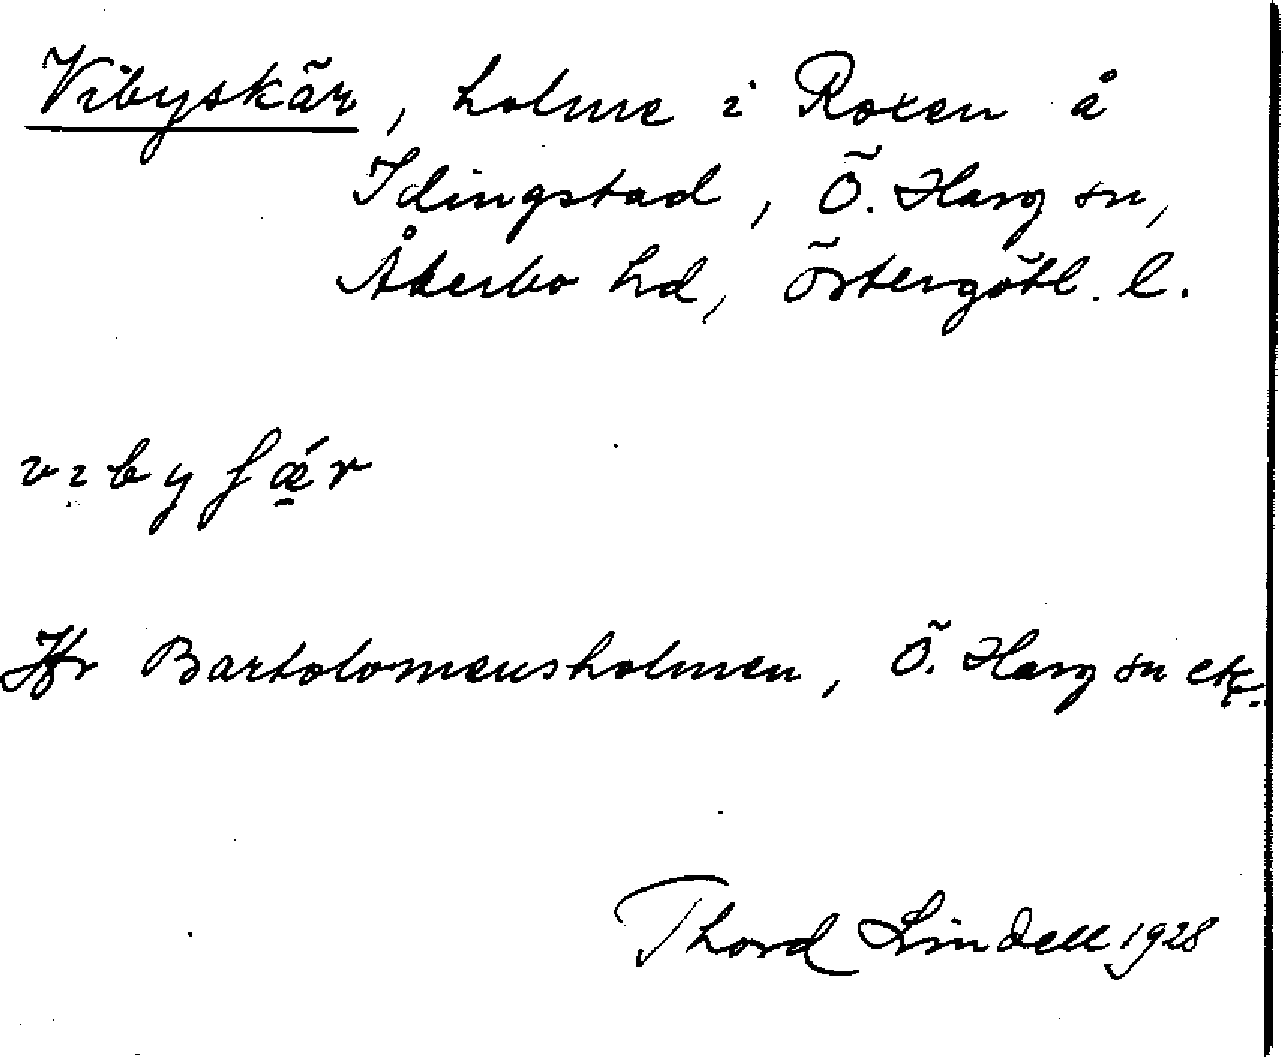 Vibyskär, holme i Roxen å
Idingstad, Ö. Harg sn,
Åkerbo hd, Östergötl. l.
vıbyʃǽ̠r
Jfr Bartolomeusholmen, Ö. Harg sn etc.
Thord Lindell 1928